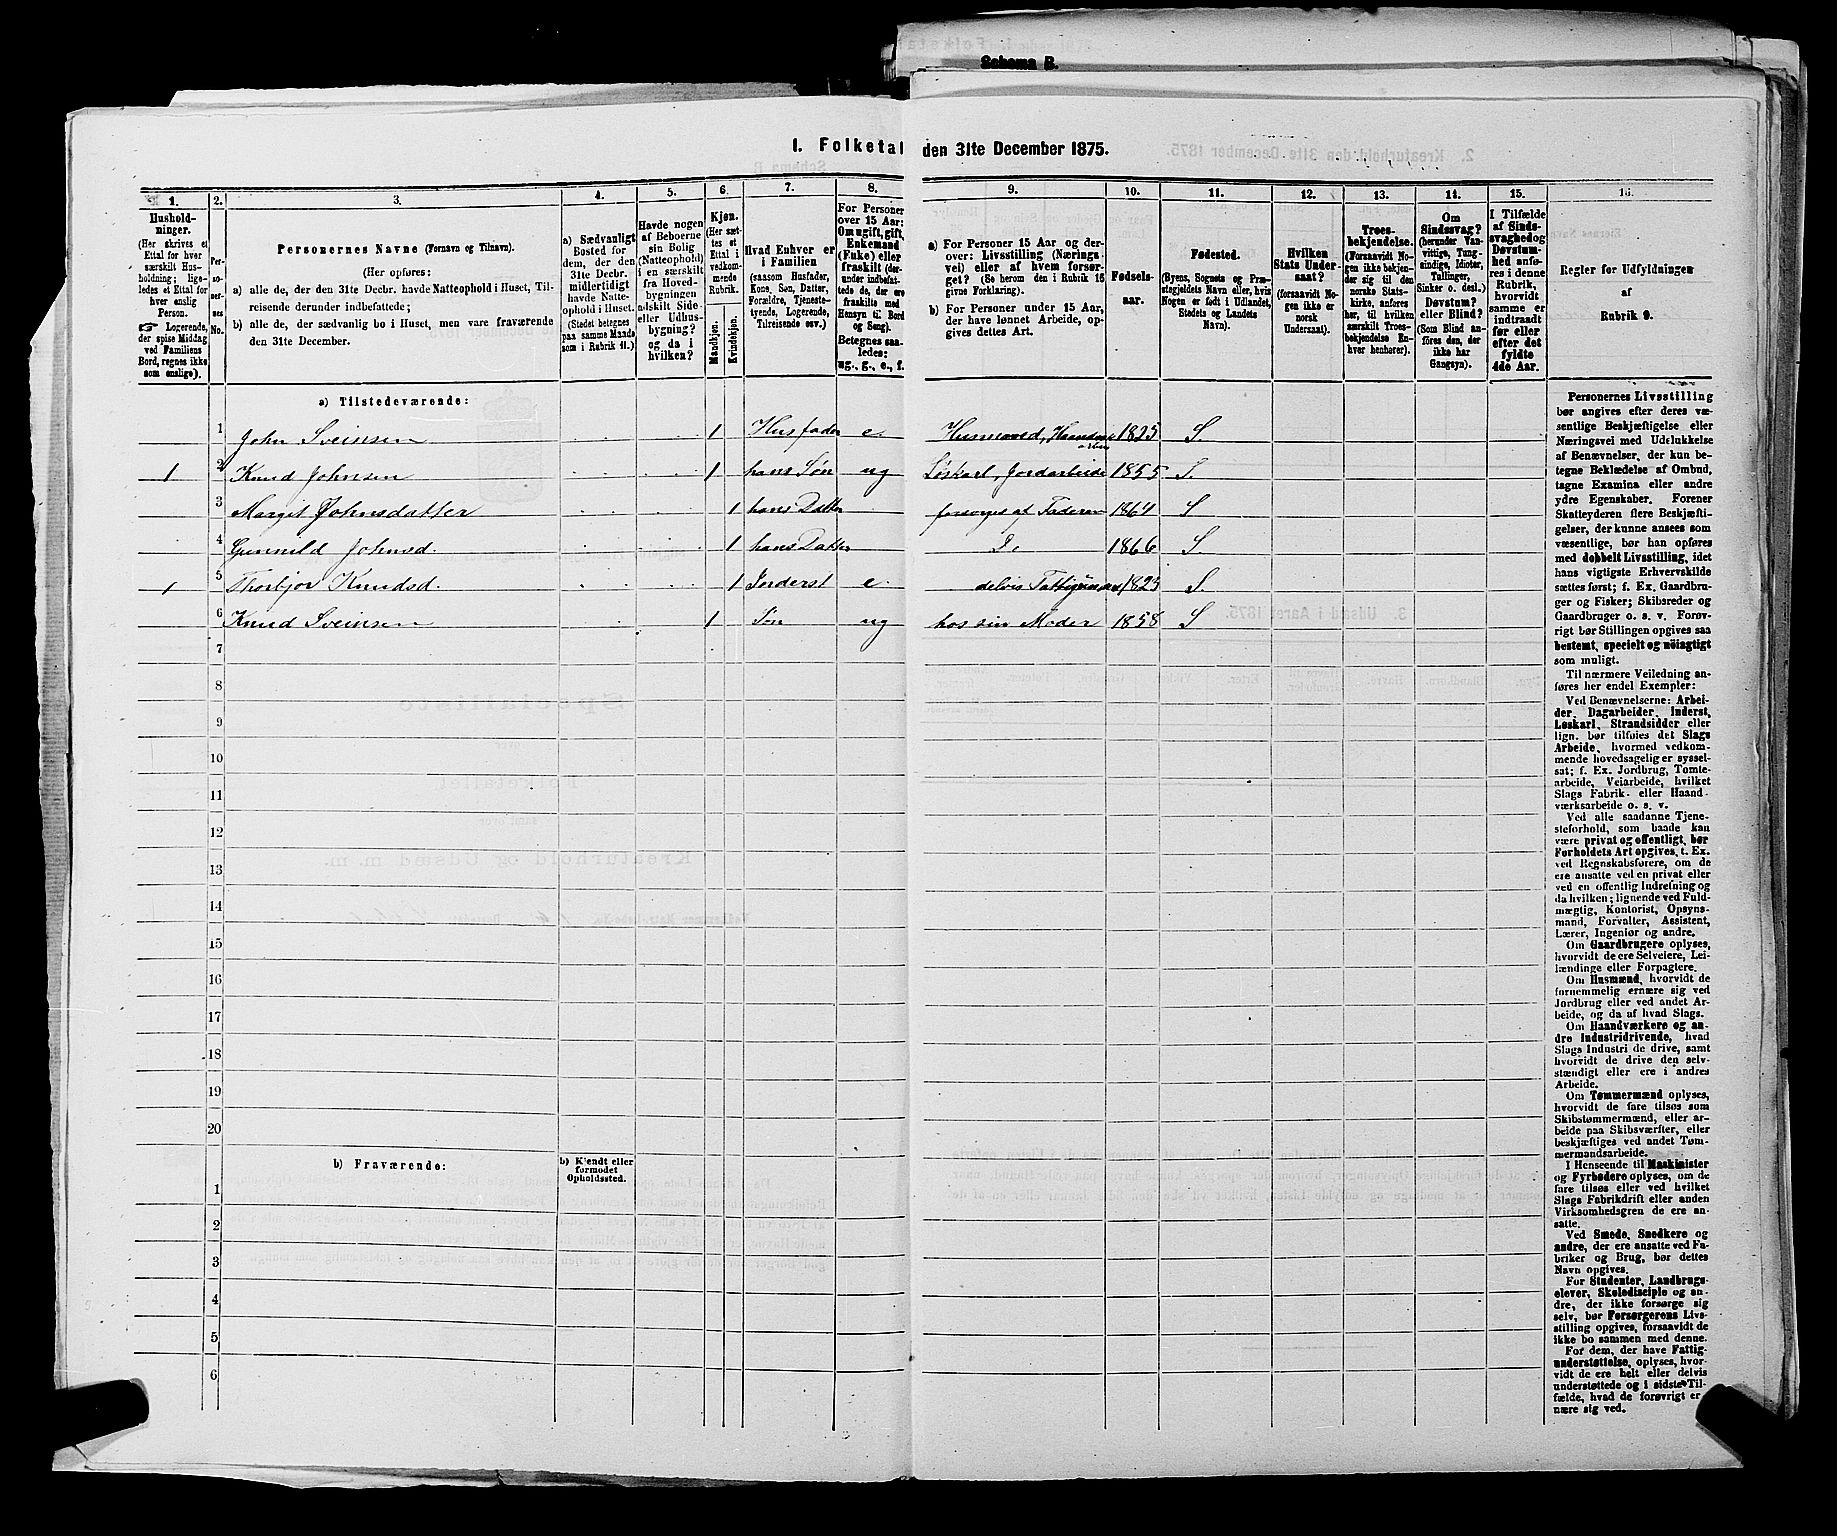 Schema B.
I. Folketal den 31te December 1875.
1. 2. 3. 4. 5. 6. 7. 8. 9. 10. 11. 12. 13. 14. 15. 16.
Hushold-
ninger.
(Her skrives et
Ettal for hver
særskilt Hus-
holdning; lige-
ledes et Ettal for
hver enslig
Person.
☞ Logerende,
der spise Middag
ved Familiens
Bord, regnes ikke
som enslige).
Per-
so-
ner-
nes
No.
Personernes Navne (Fornavn og Tilnavn).
(Her opføres:
a) alle de, der den 31te Decbr. havde Natteophold i Huset, Til-
reisende derunder indbefattede;
b) alle de, der sædvanlig bo i Huset, men vare fraværende
den 31te December.
a) Sædvanligt
Bosted for
dem, der den
31te Decbr.
midlertidigt
havde Natte-
ophold i Huset.
(Stedet betegnes
paa samme Maade
som i Rubrik 11.)
Havde nogen
af Beboerne
sin Bolig
(Natteophold)
i en særskilt
fra Hoved-
bygningen
adskilt Side-
eller Udhus-
bygning?
og da i
hvilken?
Kjøn.
(Her sæt-
tes et
Ettal i
vedkom-
mende
Rubrik.
Mandkjøn.
Kvindekjøn.
Hvad Enhver er
i Familien
(saasom Husfader,
Kone, Søn, Datter,
Forældre, Tjeneste-
tyende, Logerende,
Tilreisende osv.)
For Personer
over 15 Aar:
Om ugift, gift,
Enkemand
(Enke) eller
fraskilt (der-
under indbefat-
tede de, der ere
fraskilte med
Hensyn til Bord
og Seng).
Betegnes saa-
ledes:
ug., g., e., f.
a) For Personer 15 Aar og der-
over: Livsstilling (Nærings-
vei) eller af hvem forsør-
get? (Se herom den i Rubrik 16
givne Forklaring).
b) For Personer under 15 Aar,
der have lønnet Arbeide, op-
gives dettes Art.
Fødsels-
aar.
Fødested.
(Byens, Sognets og Præ-
stegjeldets Navn eller, hvis
Nogen er født i Udlandet,
Stedets og Landets
Navn).
Hvilken
Stats Under-
saat?
(forsaavidt No-
gen ikke er
norsk
Undersaat).
Troes-
bekjendelse.
(Forsaavidt No-
gen ikke bekjen-
der sig til den
norske Stats-
kirke, anføres
her, til hvilken
særskilt Troes-
bekjendelse En-
hver henhører).
Om
Sindssvag?
(herunder Van-
vittige, Tung-
sindige, Idioter,
Tullinger,
Sinker o. desl.)
Døvstum?
eller Blind?
(Som Blind an-
føres den, der
ikke har
Gangsyn).
I Tilfælde
af Sinds-
svaghed og
Døvstum-
hed anfø-
res i denne
Rubrik,
hvorvidt
samme er
indtraadt
før eller
efter det
fyldte
4de Aar.
Regler for Udfyldningen
af
Rubrik 9.
a) Tilstedeværende:
1 John Sveinsen 1 Husfader e. Husmand, 1825 S.
1 2 Knud Johnsen 1 hans Søn ug Løskarl, Jordarbeide 1855 S.
3 Margit Johnsdatter 1 hans Datter forsørges af Faderen 1864 S
4 Gunnild Johnsd. 1 hans Datter D. 1866 S
1 5 Thorbjør Knudsd. 1 Inderst e. delvis 1823 S.
6 Knud Sveinsen 1 Søn ug hos sin Moder 1858 S
7
8
9
10
11
12
13
14
15
16
17
18
19
20
b) Fraværende:
b) Kjendt eller
formodet
Opholdssted.
1
2
3
4
5
6
Personernes Livsstilling
bør angives efter deres væ-
sentlige Beskjæftigelse eller
Næringsvei med Udelukkelse
af Benævnelser, der kun be-
tegne Beklædelse af Ombud,
tagne Examina eller andre
ydre Egenskaber. Forener
Skatteyderen flere Beskjæfti-
gelser, der kunne ansees som
væsentlige, bør han opføres
med dobbelt Livsstilling, idet
hans vigtigste Erhvervskilde
sættes først; f. Ex. Gaardbru-
ger og Fisker; Skibsreder og
Gaardbruger o. s. v. Forøv-
rigt bør Stillingen opgives saa
bestemt, specielt og nøiagtigt
som muligt.
Til nærmere Veiledning an-
føres her endel Exempler:
Ved Benævnelserne: Arbei-
der, Dagarbeider, Inderst,
Løskarl, Strandsidder eller
lign. bør tilføies det Slags
Arbeide, hvormed vedkom-
mende hovedsagelig er syssel-
sat; f. Ex. Jordbrug, Tomte-
arbeide, Veiarbeide, hvilket
Slags Fabrik- eller Haand-
værksarbeide o. s. v.
Ved alle saadanne Tjene-
steforhold, som baade kan
være privat og offentligt, bør
Forholdets Art opgives, t. Ex.
ved Regnskabsførere, om de
ere ansatte ved en privat eller
ved en offentlig Indretning og
da hvilken; lignende ved Fuld-
mægtig, Kontorist, Opsyns-
mand, Forvalter, Assistent,
Lærer, Ingeniør og andre.
Om Gaardbrugere oplyses,
hvorvidt de ere Selveiere, Lei-
lændinge eller Forpagtere.
Om Husmænd, hvorvidt de
fornemmelig ernære sig ved
Jordbrug eller ved andet Ar-
beide, og da af hvad Slags.
Om Haandværkere og an-
dre Industridrivende, hvad
Slags Industri de drive, samt
hvorvidt de drive den selv-
stændigt eller ere i andres
Arbeide.
Om Tømmermænd oplyses,
hvorvidt de fare tilsøs som
Skibstømmermænd, eller ar-
beide paa Skibsværfter, eller
beskjæftiges ved andet Tøm-
mermandsarbeide.
I Henseende til Maskinister
og Fyrbødere oplyses, om de
fare tilsøs eller ved hvilket
Slags Fabrikdrift eller anden
Virksomhedsgren de ere an-
satte.
Ved Smede, Snedkere og
andre, der ere ansatte ved Fa-
briker og Brug, bør dettes
Navn opgives.
For Studenter, Landbrugs-
elever, Skoledisciple og an-
dre, der ikke forsørge sig
selv, bør Forsørgerens Livs-
stilling opgives, forsaavidt de
ikke bo sammen med denne.
For dem, der have Fattig-
understøttelse, oplyses, hvor-
vidt de ere helt eller delvis
understøttede og i sidste Til-
fælde, hvad de forøvrigt er-
nære sig ved.